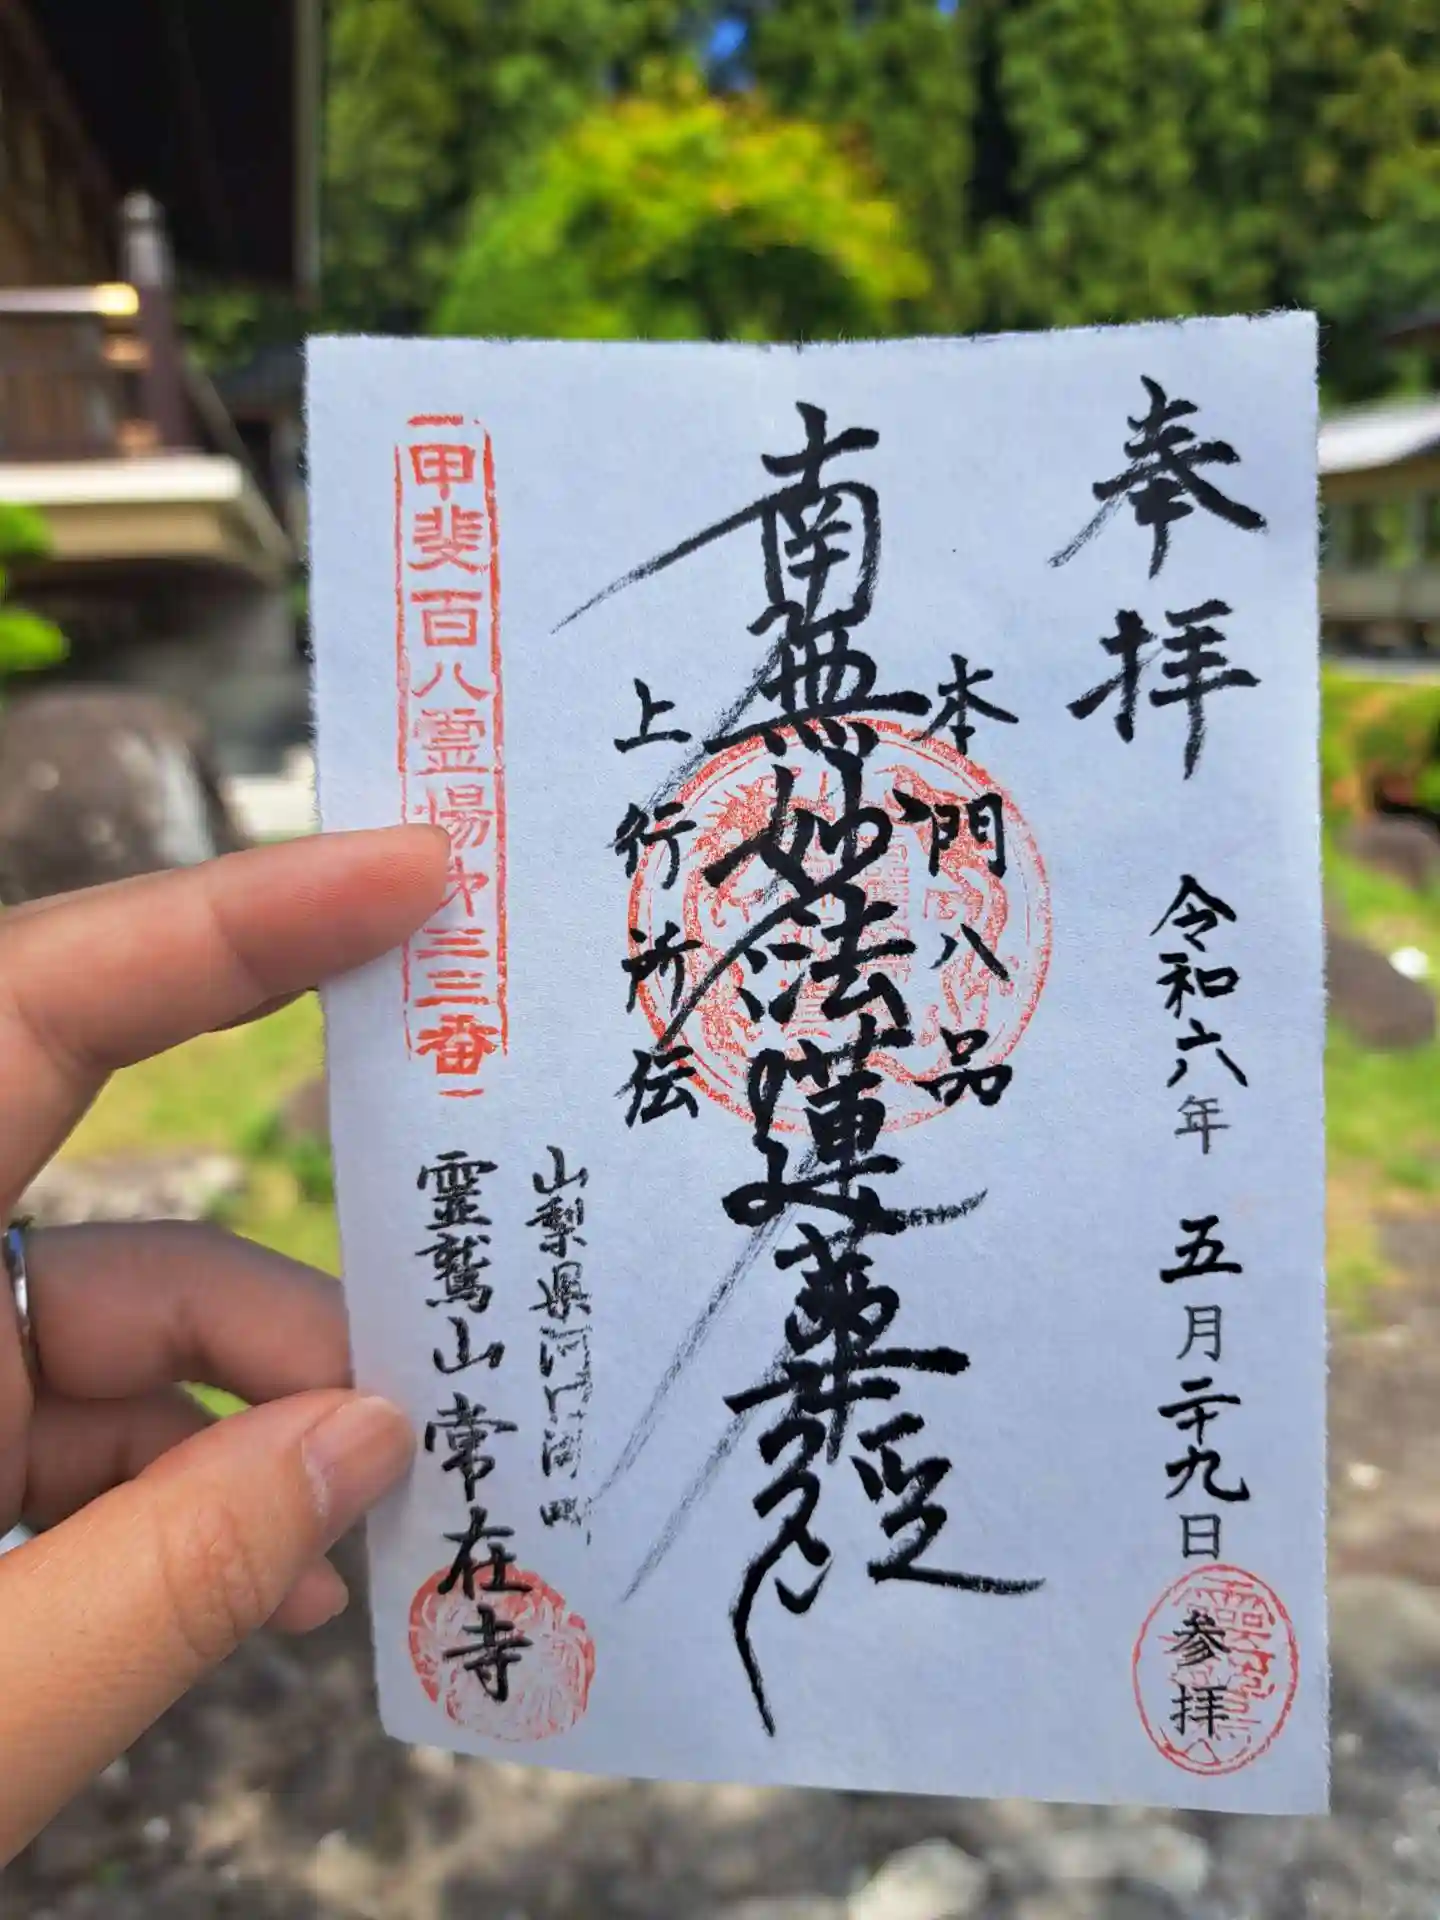 奉拝
令和六年 五月二十九日
参拝
本門八品
南無妙法蓮華経
上行所伝
山梨県河口湖町
甲斐百八霊場第三三番
霊鷲山常在寺